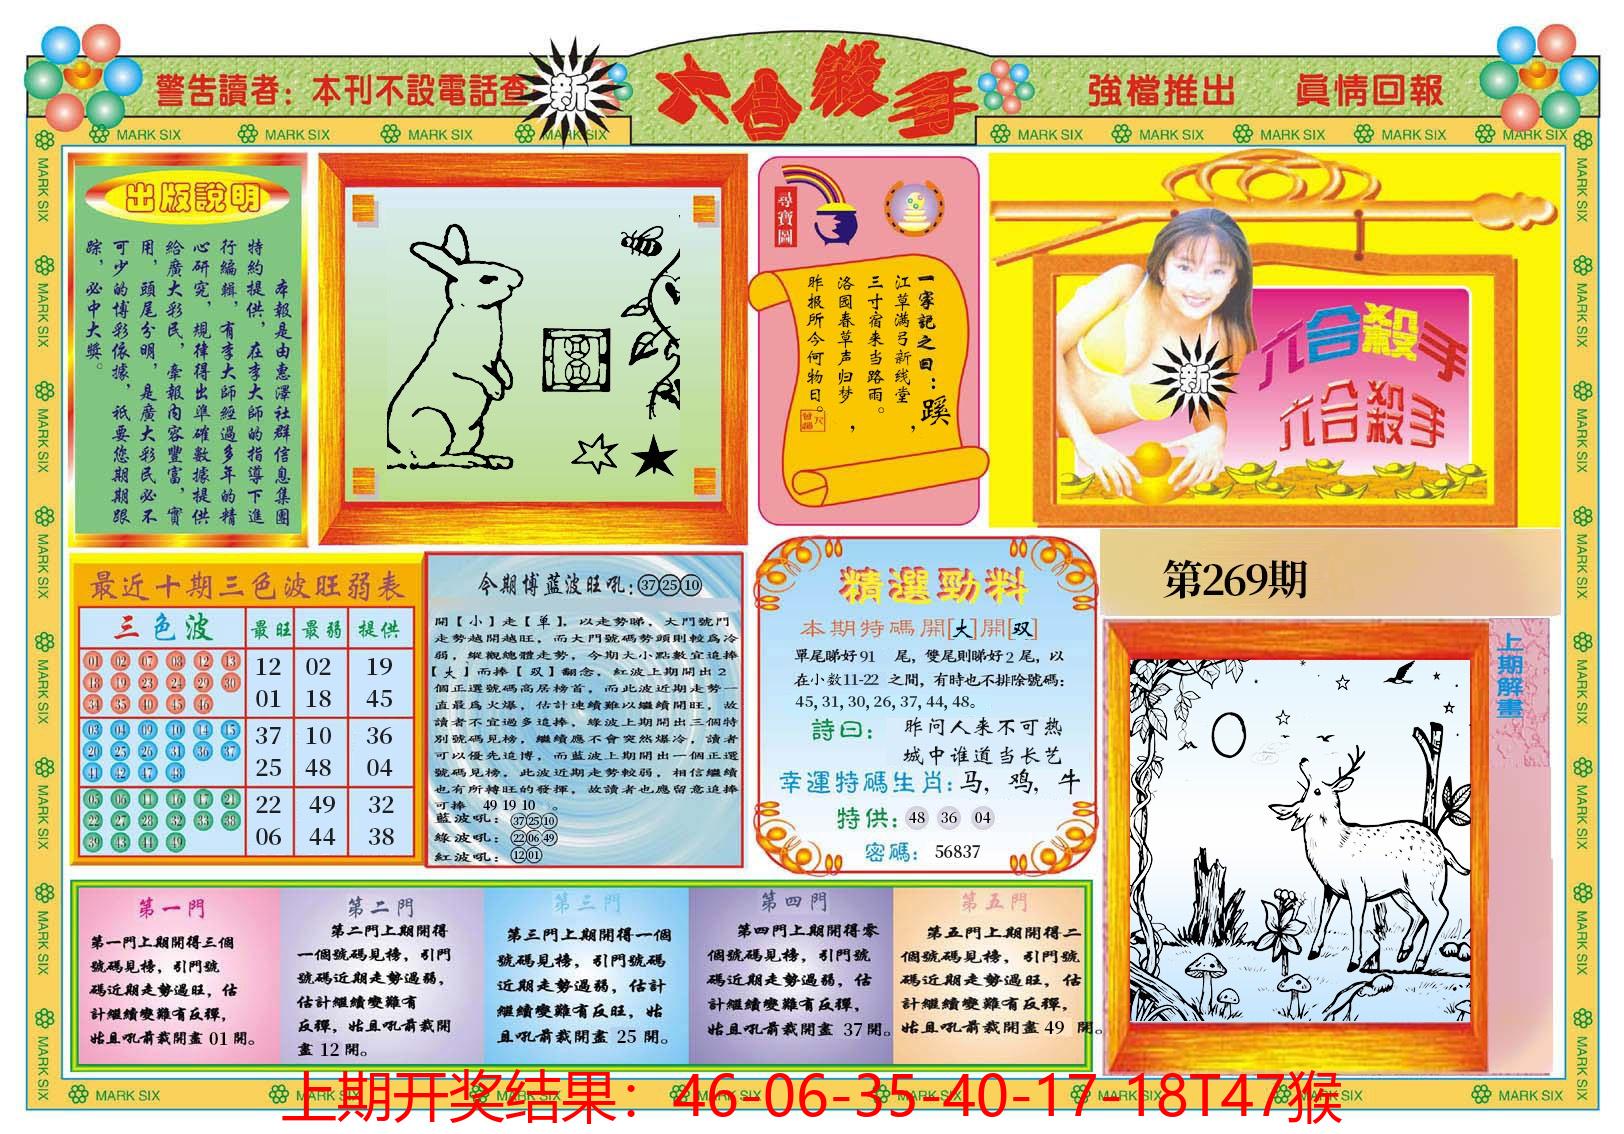 警告讀者：本刊不設電話查
新
六合殺手
強檔推出 眞情回報
MARK SIX
MARK SIX
MARK SIX
MARK SIX
MARK SIX
MARK SIX
MARK SIX
MARK SIX
MARK SIX
出版說明
本報是由惠澤社群信息集團
特約提供，在李大師的指導下進
行編輯，有李大師經過多年的精
心研究，規律得出準確數據提供
給廣大彩民，牽報內容豐富，實
用，頭尾分明，是廣大彩民必不
可少的博彩依據，祇要您期期跟
踪，必中大獎。
尋寶圖
一家記之曰：蹊
江草满弓新线堂，
三寸宿来当路雨。
洛园春草声归梦，
昨报所今何物日。
六合殺手
新
六合殺手
第269期
最近十期三色波旺弱表
三色波 最旺 最弱 提供
01 02 07 08 12 13
18 19 23 24 29 30
34 35 40 45 46
12 02 19
01 18 45
03 04 09 10 14 15
20 25 26 31 36 37
41 42 47 48
37 10 36
25 48 04
05 06 11 16 17 21
22 27 28 32 33 38
39 43 44 49
22 49 32
06 44 38
今期博藍波旺吼：37 25 10
開【小】走【单】，以走勢睇，大門號門
走勢越開越旺，而大門號碼勢頭則較爲冷
弱，縱觀總體走勢，今期大小點數宜追捧
【大】而捧【双】翻念，紅波上期開出2
個正選號碼高居榜首，而此波近期走勢一
直最爲火爆，估計連續難以繼續開旺，故
讀者不宜過多追捧，綠波上期開出三個特
別號碼見榜，繼續應不會突然爆冷，讀者
可以優先追博，而藍波上期開出一個正選
號碼見榜，此波近期走勢較弱，相信繼續
也有所轉旺的發揮，故讀者也應留意追捧
可捧 49 19 10 。
藍波吼：37 25 10
綠波吼：22 06 49
紅波吼：12 01
精選勁料
本期特碼開[大]開[双]
單尾睇好91 尾，雙尾則睇好2尾，以
在小数11-22 之間，有時也不排除號碼：
45, 31, 30, 26, 37, 44, 48。
詩曰： 昨问人来不可热
城中谁道当长艺
幸運特碼生肖：马，鸡，牛
特供：48 36 04
密碼： 56837
上期解畫
第一門
第一門上期開得三個
號碼見榜，引門號
碼近期走勢過旺，估
計繼續變難有反彈，
姑且吼前裁開畫 01 開。
第二門
第二門上期開得
一個號碼見榜，引門
號碼近期走勢過弱，
估計繼續變難有
反彈，姑且吼前裁開
畫 12 開。
第三門
第三門上期開得一個
號碼見榜，引門號碼
近期走勢過弱，估計
繼續變難有反旺，姑
且吼前裁開畫 25 開。
第四門
第四門上期開得零
個號碼見榜，引門號
碼近期走勢過弱，估
計繼續變難有反彈，
姑且吼前裁開畫 37 開。
第五門
第五門上期開得二
個號碼見榜，引門號
碼近期走勢過旺，估
計繼續變難有反彈，
姑且吼前裁開畫 49 開。
上期开奖结果：46-06-35-40-17-18T47猴